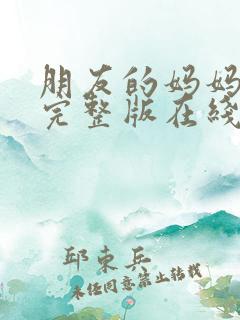 朋友的妈妈
完整版在线
邱东兵
未经同意禁止转载